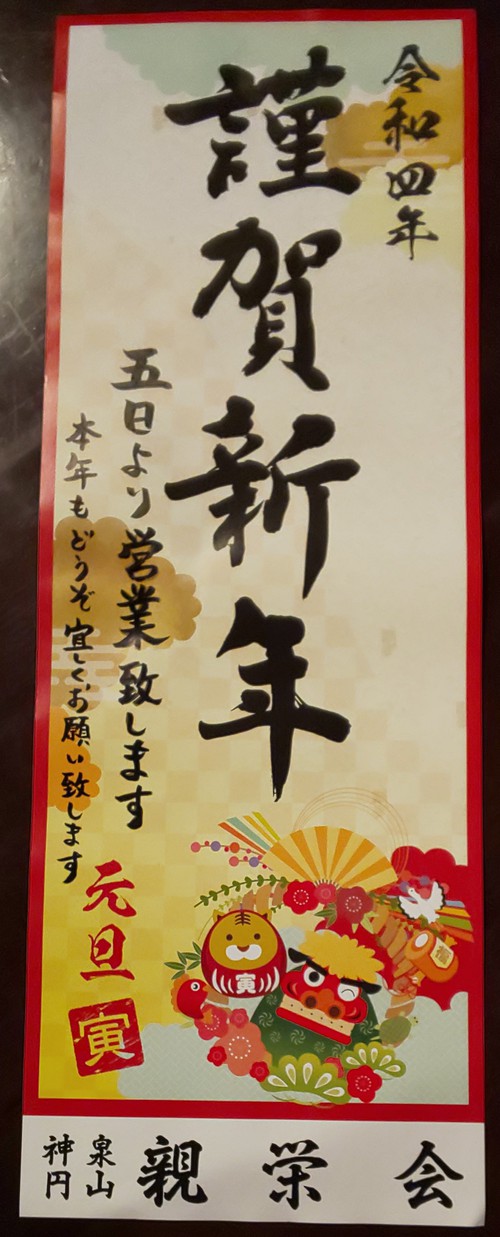 令和四年
謹賀新年
五日より営業致します
本年もどうぞ宜しくお願い致します
元旦
寅
寅
福
泉山
神円
親栄会